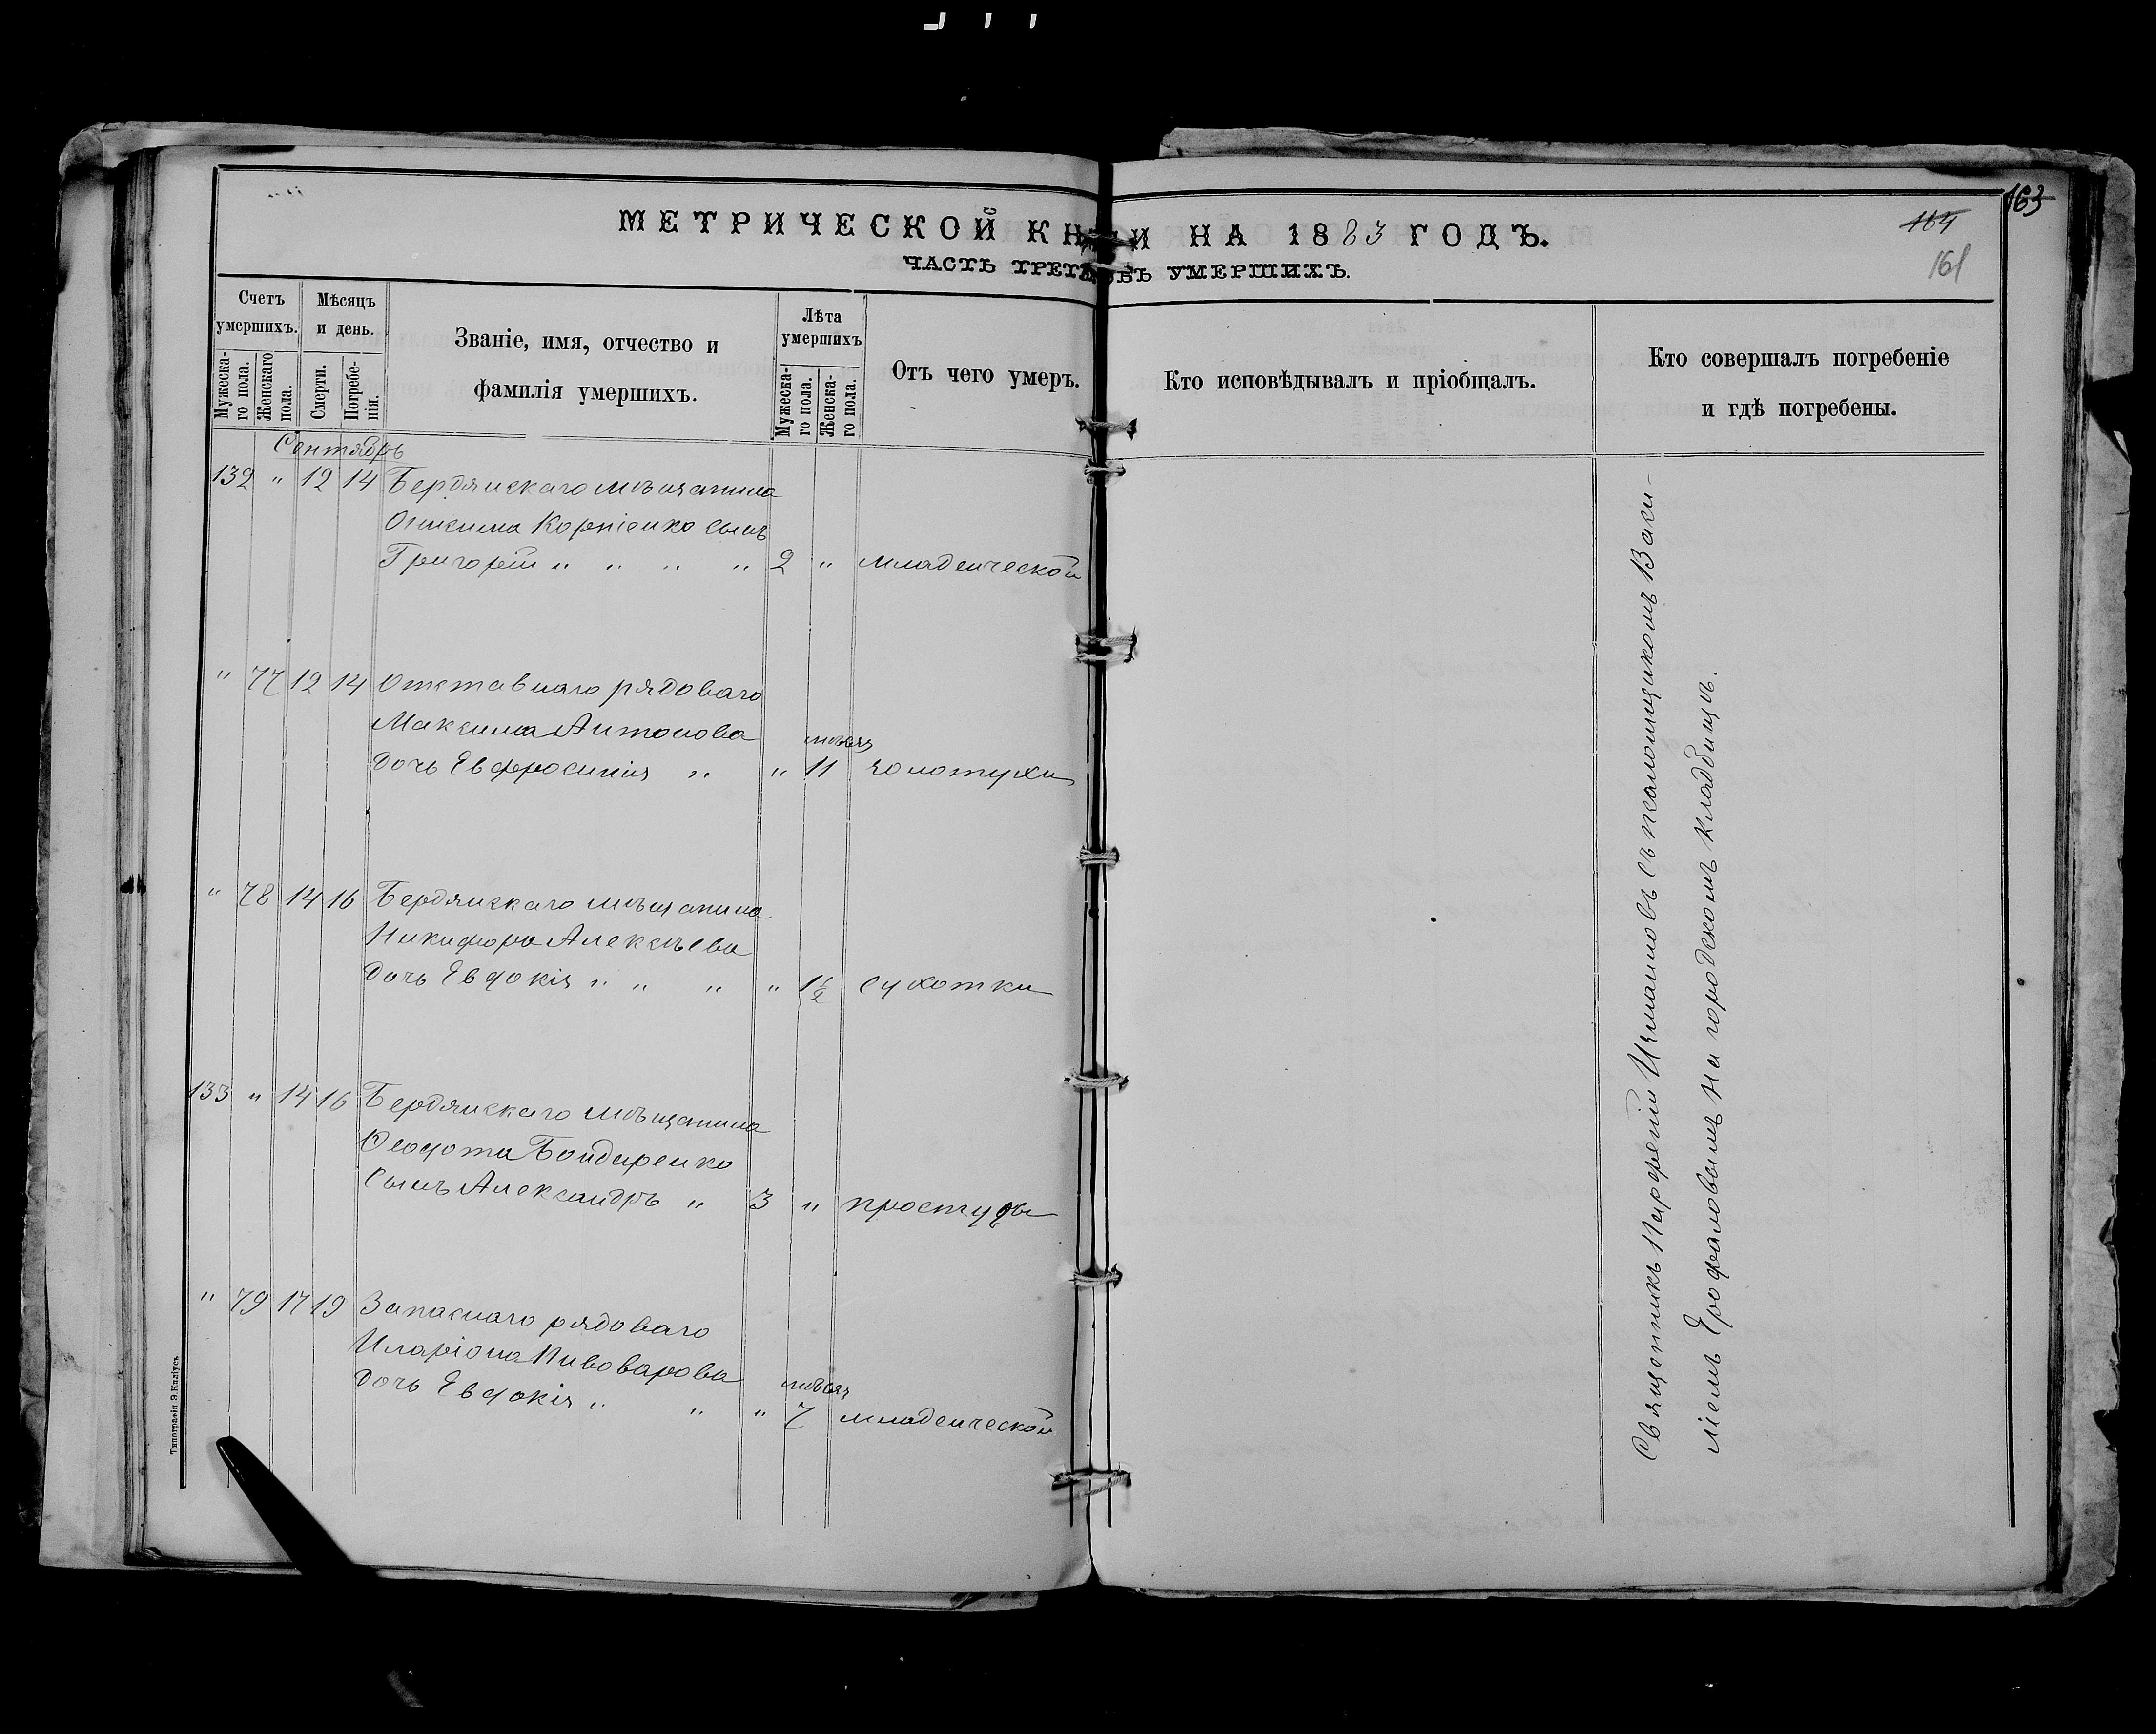 МЕТРИЧЕСКОЙ КНИГИ НА 1883 ГОДЪ.
ЧАСТЬ ТРЕТЬЯ ОБЪ УМЕРШИХЪ.
163
164
161
Счетъ умершихъ.
Мужеска-го пола.
Женскаго пола.
Мѣсяцъ и день.
Смерти.
Погребе-нія.
Званіе, имя, отчество и
фамилія умершихъ.
Лѣта умершихъ
Мужеска-го пола.
Женска-го пола.
Отъ чего умеръ.
Кто исповѣдывалъ и пріобщалъ.
Кто совершалъ погребеніе
и гдѣ погребены.
Сентябрь
132 " 12 14 Бердянскаго мѣщанина
Онисима Корніенко сынъ
Григорій " " " " 2 " младенческой
" 77 12 14 Отставнаго рядоваго
Максима Антонова
мѣсяц
дочь Евфросинія " " 11 золотухи
" 78 14 16 Бердянскаго мѣщанина
Никифора Алексѣева
дочь Евдокія " " " " 1½ сухотки
133 " 14 16 Бердянскаго мѣщанина
Ѳеодота Бондаренко
Сынъ Александръ " 3 " простуды
" 79 17 19 Запаснаго рядоваго
Иларіона Пивоварова
мѣсяц
дочь Евдокія " " " 7 младенческой
Священникъ Парфеній Измаиловъ съ псаломщикомъ Васи-
ліемъ Ерофаловымъ на городскомъ кладбищѣ.
Типографія Э. Киліусъ